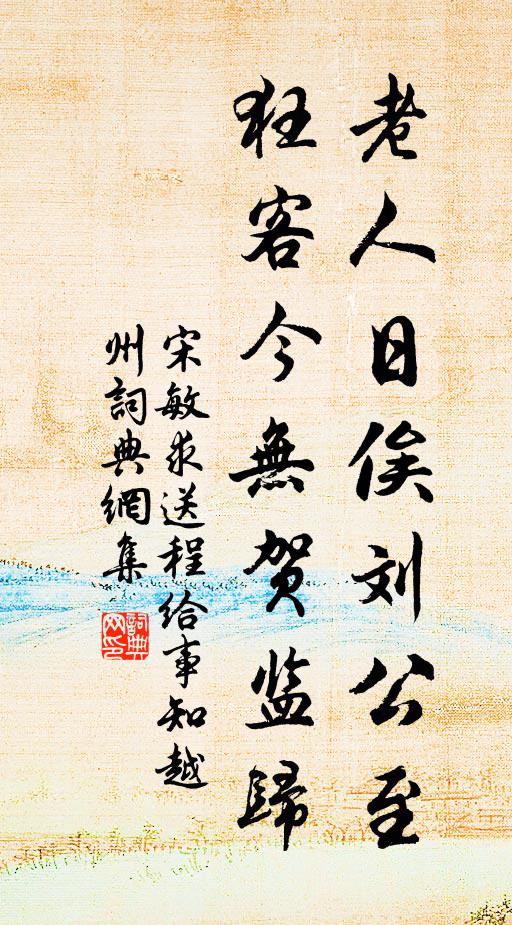 老人日俟刘公至
狂客今無贺监歸
宋敏求送程给事知越
州詞典網集
詞典
网印